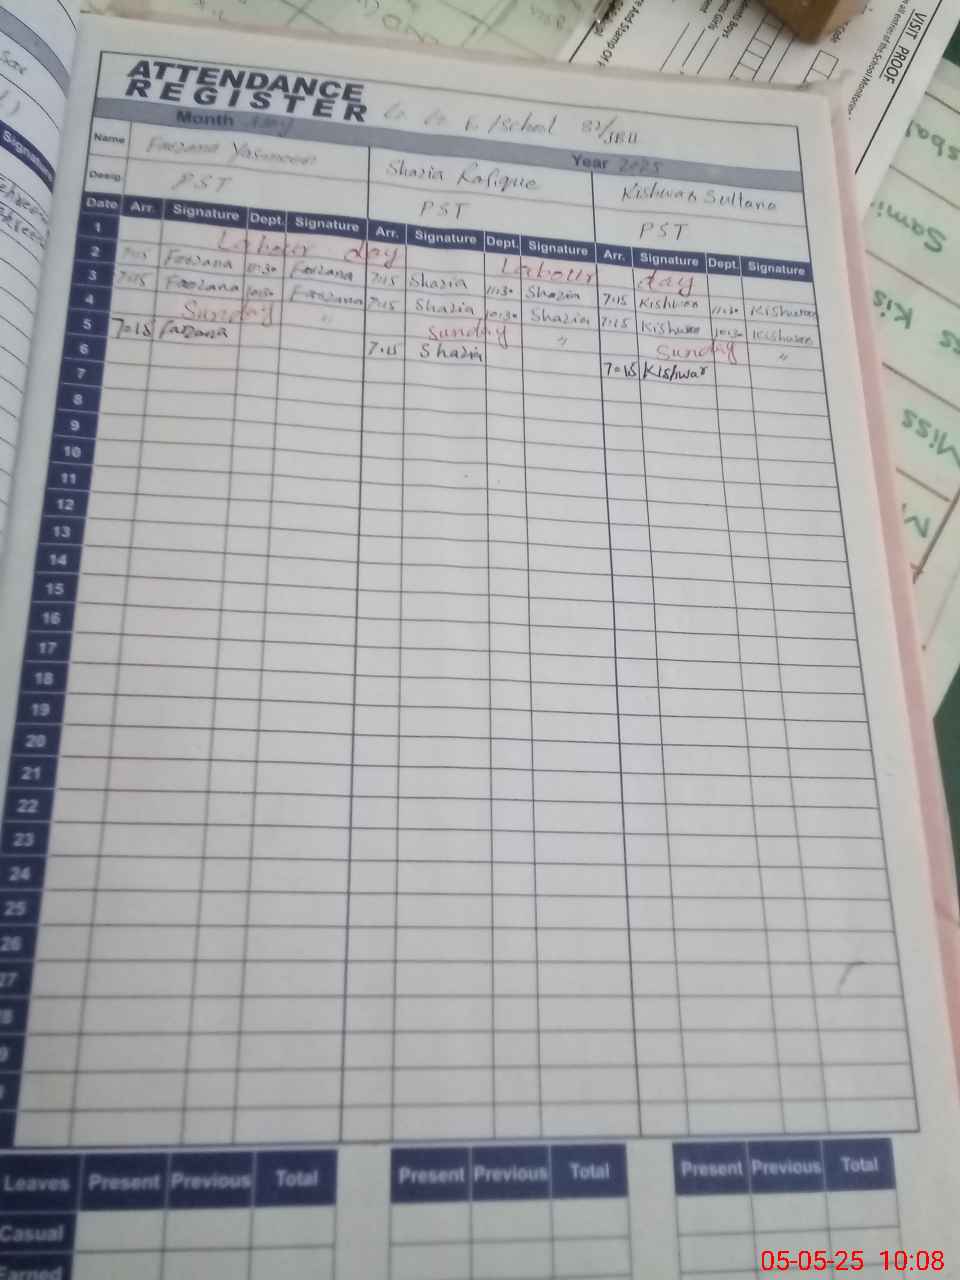 ATTENDANCE
REGISTER
G. G. E/School 82/JBH
Month May Year 2025
Name Farzana Yasmeen Shazia Rafique Kishwar Sultana
Desig. PST PST PST
Date Arr. Signature Dept. Signature Arr. Signature Dept. Signature Arr. Signature Dept. Signature
1 Labour day Labour day
2 7:15 Farzana 11:30 Farzana 7:15 Shazia 11:30 Shazia 7:15 Kishwar 11:30 Kishwar
3 7:15 Farzana 10:30 Farzana 7:15 Shazia 10:30 Shazia 7:15 Kishwar 10:30 Kishwar
4 Sunday " Sunday " Sunday "
5 7:15 Farzana 7:15 Shazia 7:15 Kishwar
6
7
8
9
10
11
12
13
14
15
16
17
18
19
20
21
22
23
24
25
26
27
Leaves Present Previous Total Present Previous Total Present Previous Total
Casual
Earned
VISIT PROOF
Signature
Miss
05-05-25 10:08